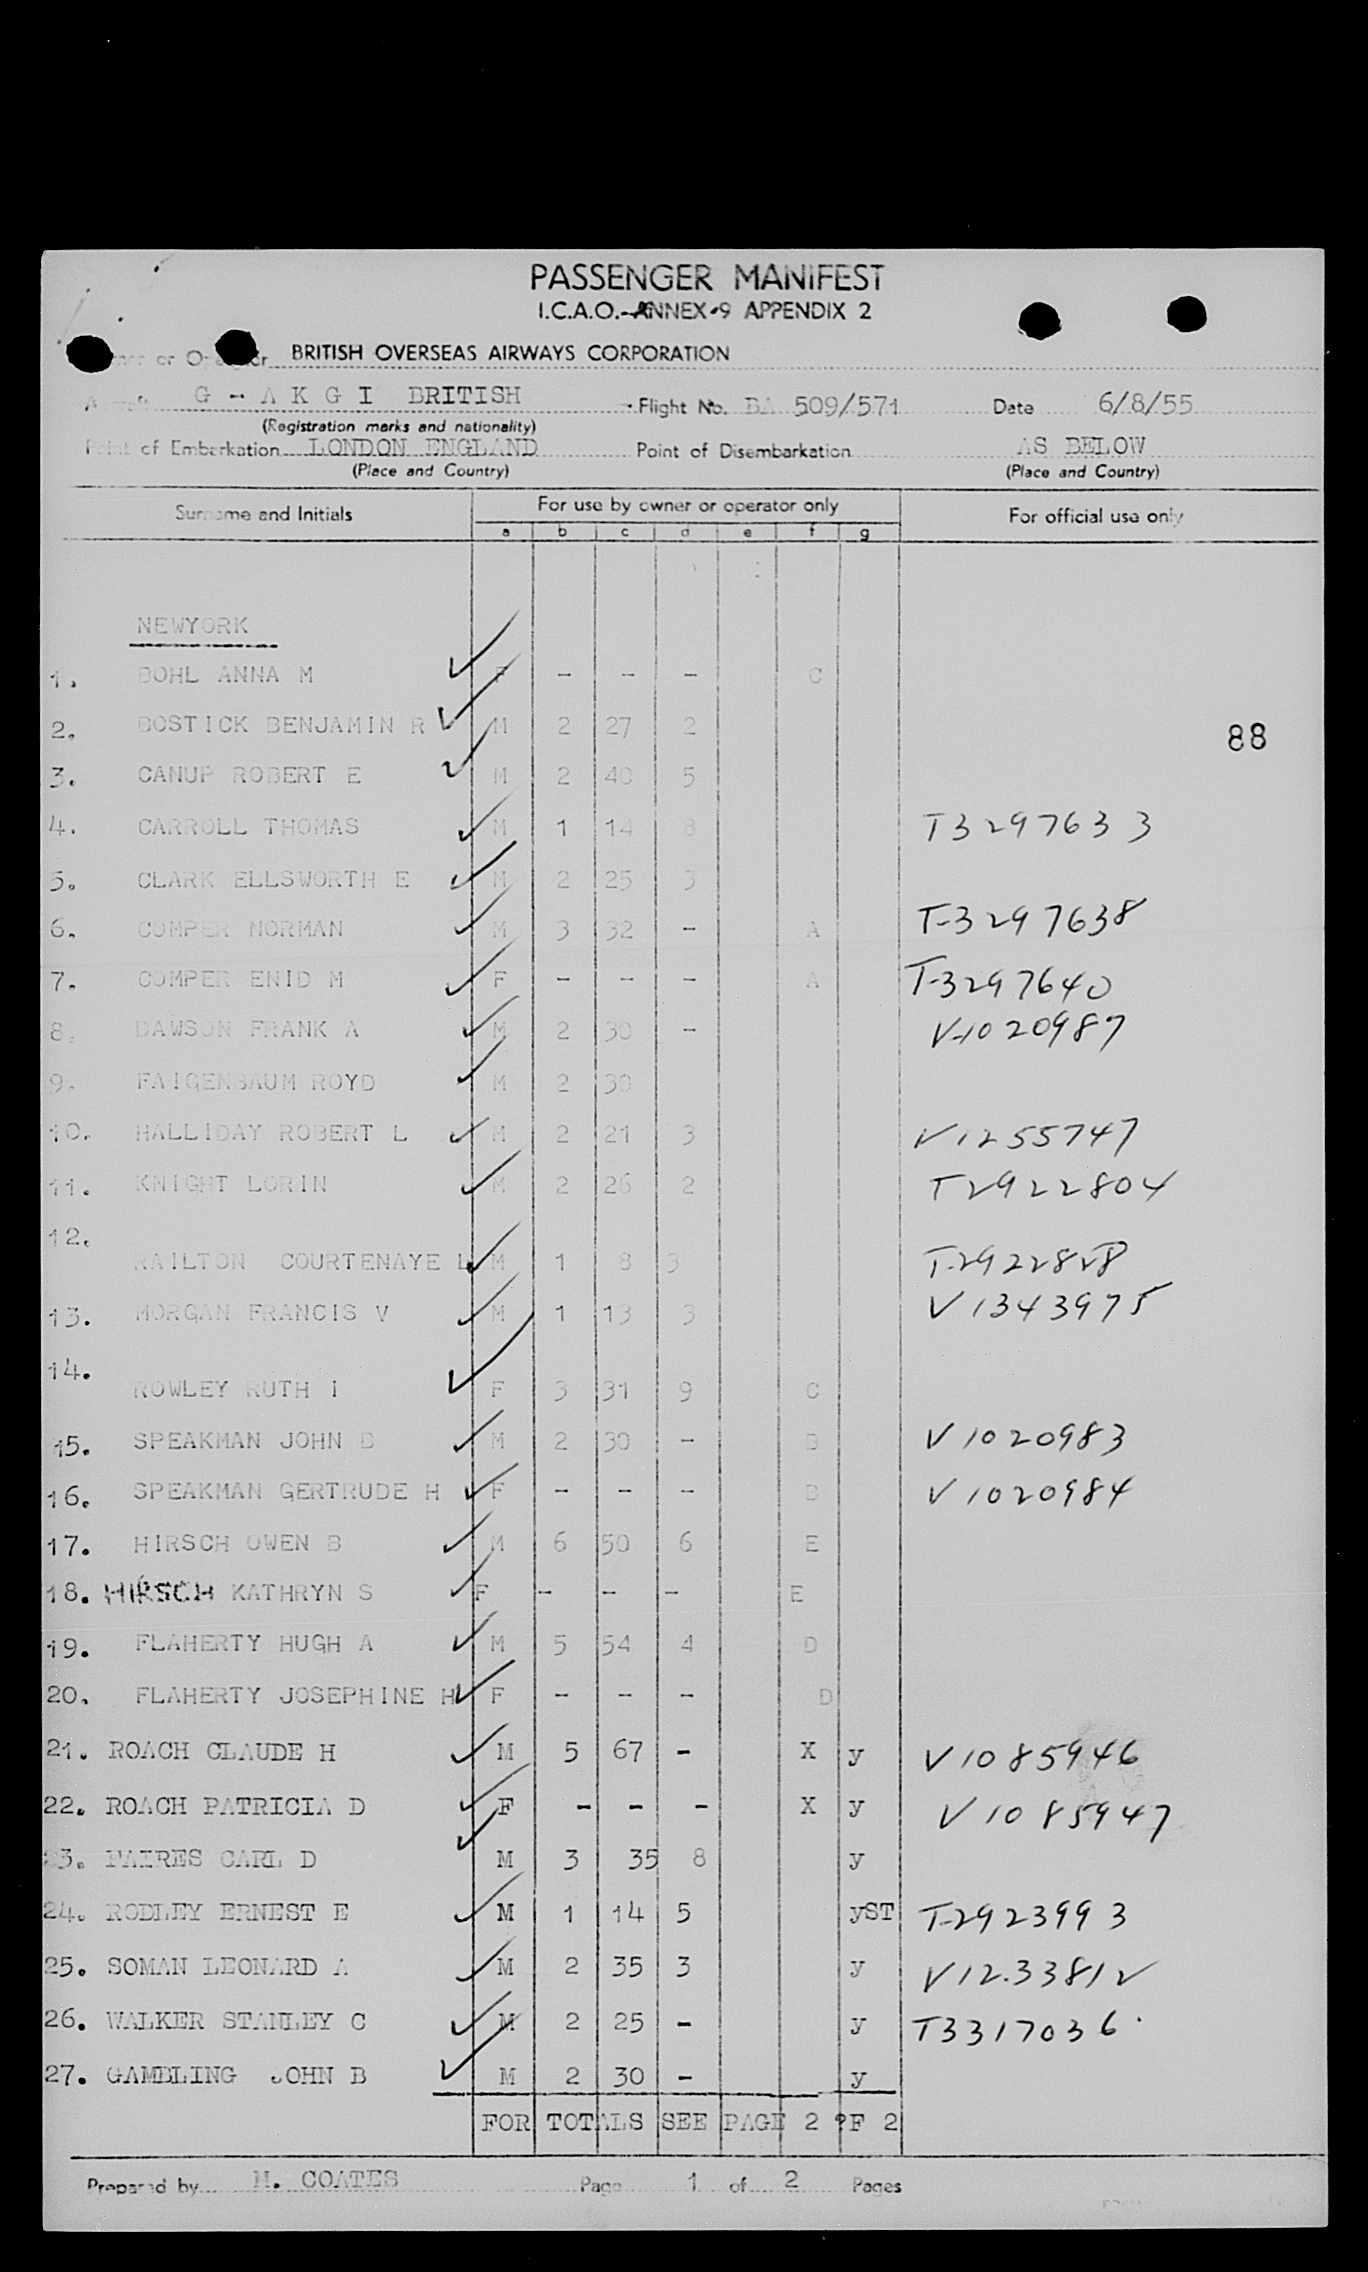 PASSENGER MANIFEST
I.C.A.O.-ANNEX-9 APPENDIX 2
or BRITISH OVERSEAS AIRWAYS CORPORATION
G - A K G I BRITISH Flight No. BA 509/571 Date 6/8/55
(Registration marks and nationality)
Point of Embarkation LONDON ENGLAND Point of Disembarkation AS BELOW
(Place and Country) (Place and Country)
Surname and Initials For use by owner or operator only For official use only
a b c d e f g
NEWYORK
1. BOHL ANNA M ✓ F - - - C
2. BOSTICK BENJAMIN R ✓ M 2 27 2
88
3. CANUP ROBERT E ✓ M 2 40 5
4. CARROLL THOMAS ✓ M 1 14 8 T3297633
5. CLARK ELLSWORTH E ✓ M 2 25 3
6. COMPER NORMAN ✓ M 3 32 - A T-3297638
7. COMPER ENID M ✓ F - - - A T-3297640
8. DAWSON FRANK A ✓ M 2 30 - V-1020987
9. FAIGENBAUM ROYD ✓ M 2 30
10. HALLIDAY ROBERT L ✓ M 2 21 3 V1255747
11. KNIGHT LORIN ✓ M 2 26 2 T2922804
12. RAILTON COURTENAYE L ✓ M 1 8 3 T-2922828
13. MORGAN FRANCIS V ✓ M 1 13 3 V1343975
14. ROWLEY RUTH I ✓ F 3 31 9 C
15. SPEAKMAN JOHN B ✓ M 2 30 - B V1020983
16. SPEAKMAN GERTRUDE H ✓ F - - - B V1020984
17. HIRSCH OWEN B ✓ M 6 50 6 E
18. HIRSCH KATHRYN S ✓ F - - - E
19. FLAHERTY HUGH A ✓ M 5 54 4 D
20. FLAHERTY JOSEPHINE H ✓ F - - - D
21. ROACH CLAUDE H ✓ M 5 67 - X y V1085946
22. ROACH PATRICIA D ✓ F - - - X y V1085947
23. FAIRES CARL D ✓ M 3 35 8 y
24. RODLEY ERNEST E ✓ M 1 14 5 yST T-2923993
25. SOMAN LEONARD A ✓ M 2 35 3 y V12.33812
26. WALKER STANLEY C ✓ M 2 25 - y T3317036.
27. GAMBLING JOHN B ✓ M 2 30 - y
FOR TOTALS SEE PAGE 2 ?F 2
Prepared by M. COATES Page 1 of 2 Pages